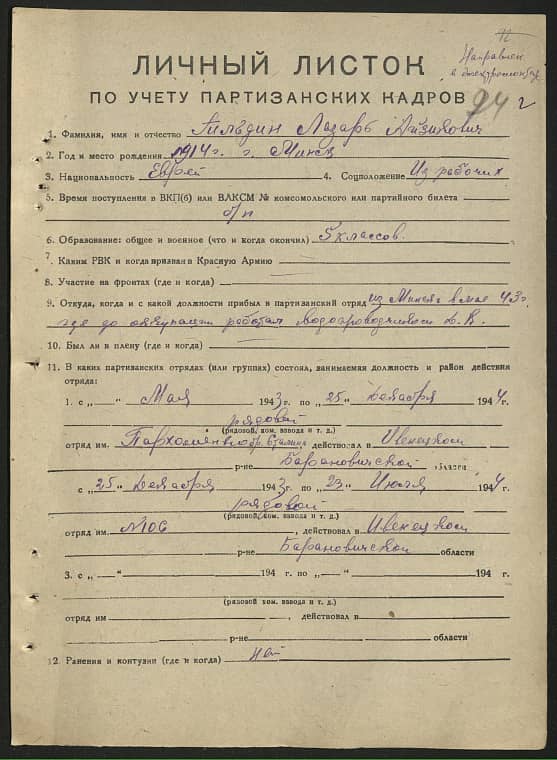 12
Направлен
94 г
ЛИЧНЫЙ ЛИСТОК
ПО УЧЕТУ ПАРТИЗАНСКИХ КАДРОВ
1. Фамилия, имя и отчество Гильдин Лазарь Айзикович
2. Год и место рождения 1914 г. г. Минск
3. Национальность Еврей 4. Соцположение Из рабочих
5. Время поступления в ВКП(б) или ВЛКСМ № комсомольского или партийного билета
б/п
6. Образование: общее и военное (что и когда окончил) 5 классов.
7. Каким РВК и когда призван в Красную Армию
8. Участие на фронтах (где и когда)
9. Откуда, когда и с какой должности прибыл в партизанский отряд из Минска в мае 43 г.
где до оккупации работал
10. Был ли в плену (где и когда)
11. В каких партизанских отрядах (или группах) состоял, занимаемая должность и район действия
отряда:
1. с „ — “ Мая 1943 г. по „25“ декабря 1944 г.
рядовой
(рядовой, ком. взвода и т. д.)
отряд им. Пархоменко бр. Сталина, действовал в Ивенецком
р-не Барановичской области
с „25“ декабря 1943 г. по „23“ Июля 1944 г.
рядовой
(рядовой, ком. взвода и т. д.)
отряд им 106, действовал в Ивенецком
р-не Барановичской области
3. с „ — “ 194 г. по „ — “ 194 г.
(рядовой ком. взвода и т. д.)
отряд им , действовал в
р-не области
12. Ранения и контузии (где и когда) нет